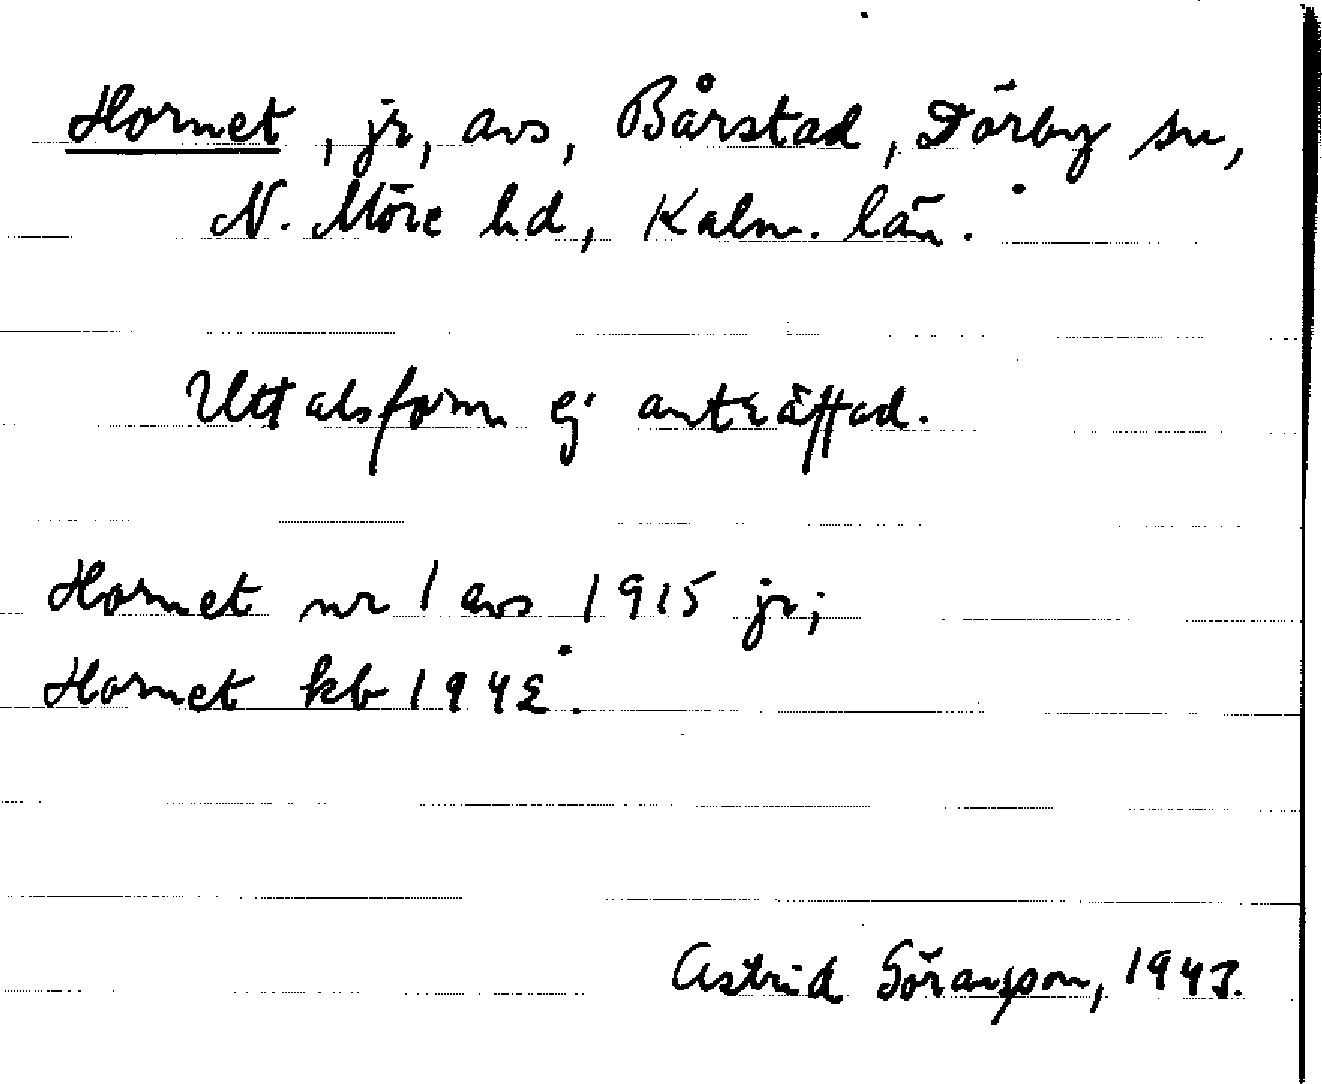 Hornet, jr, avs, Bårstad, Dörby sn,
N. Möre hd, Kalm. län.
Uttalsform ej anträffad.
Hornet nr 1 avs 1915 jr;
Hornet kb 1942.
Astrid Göransson, 1943.